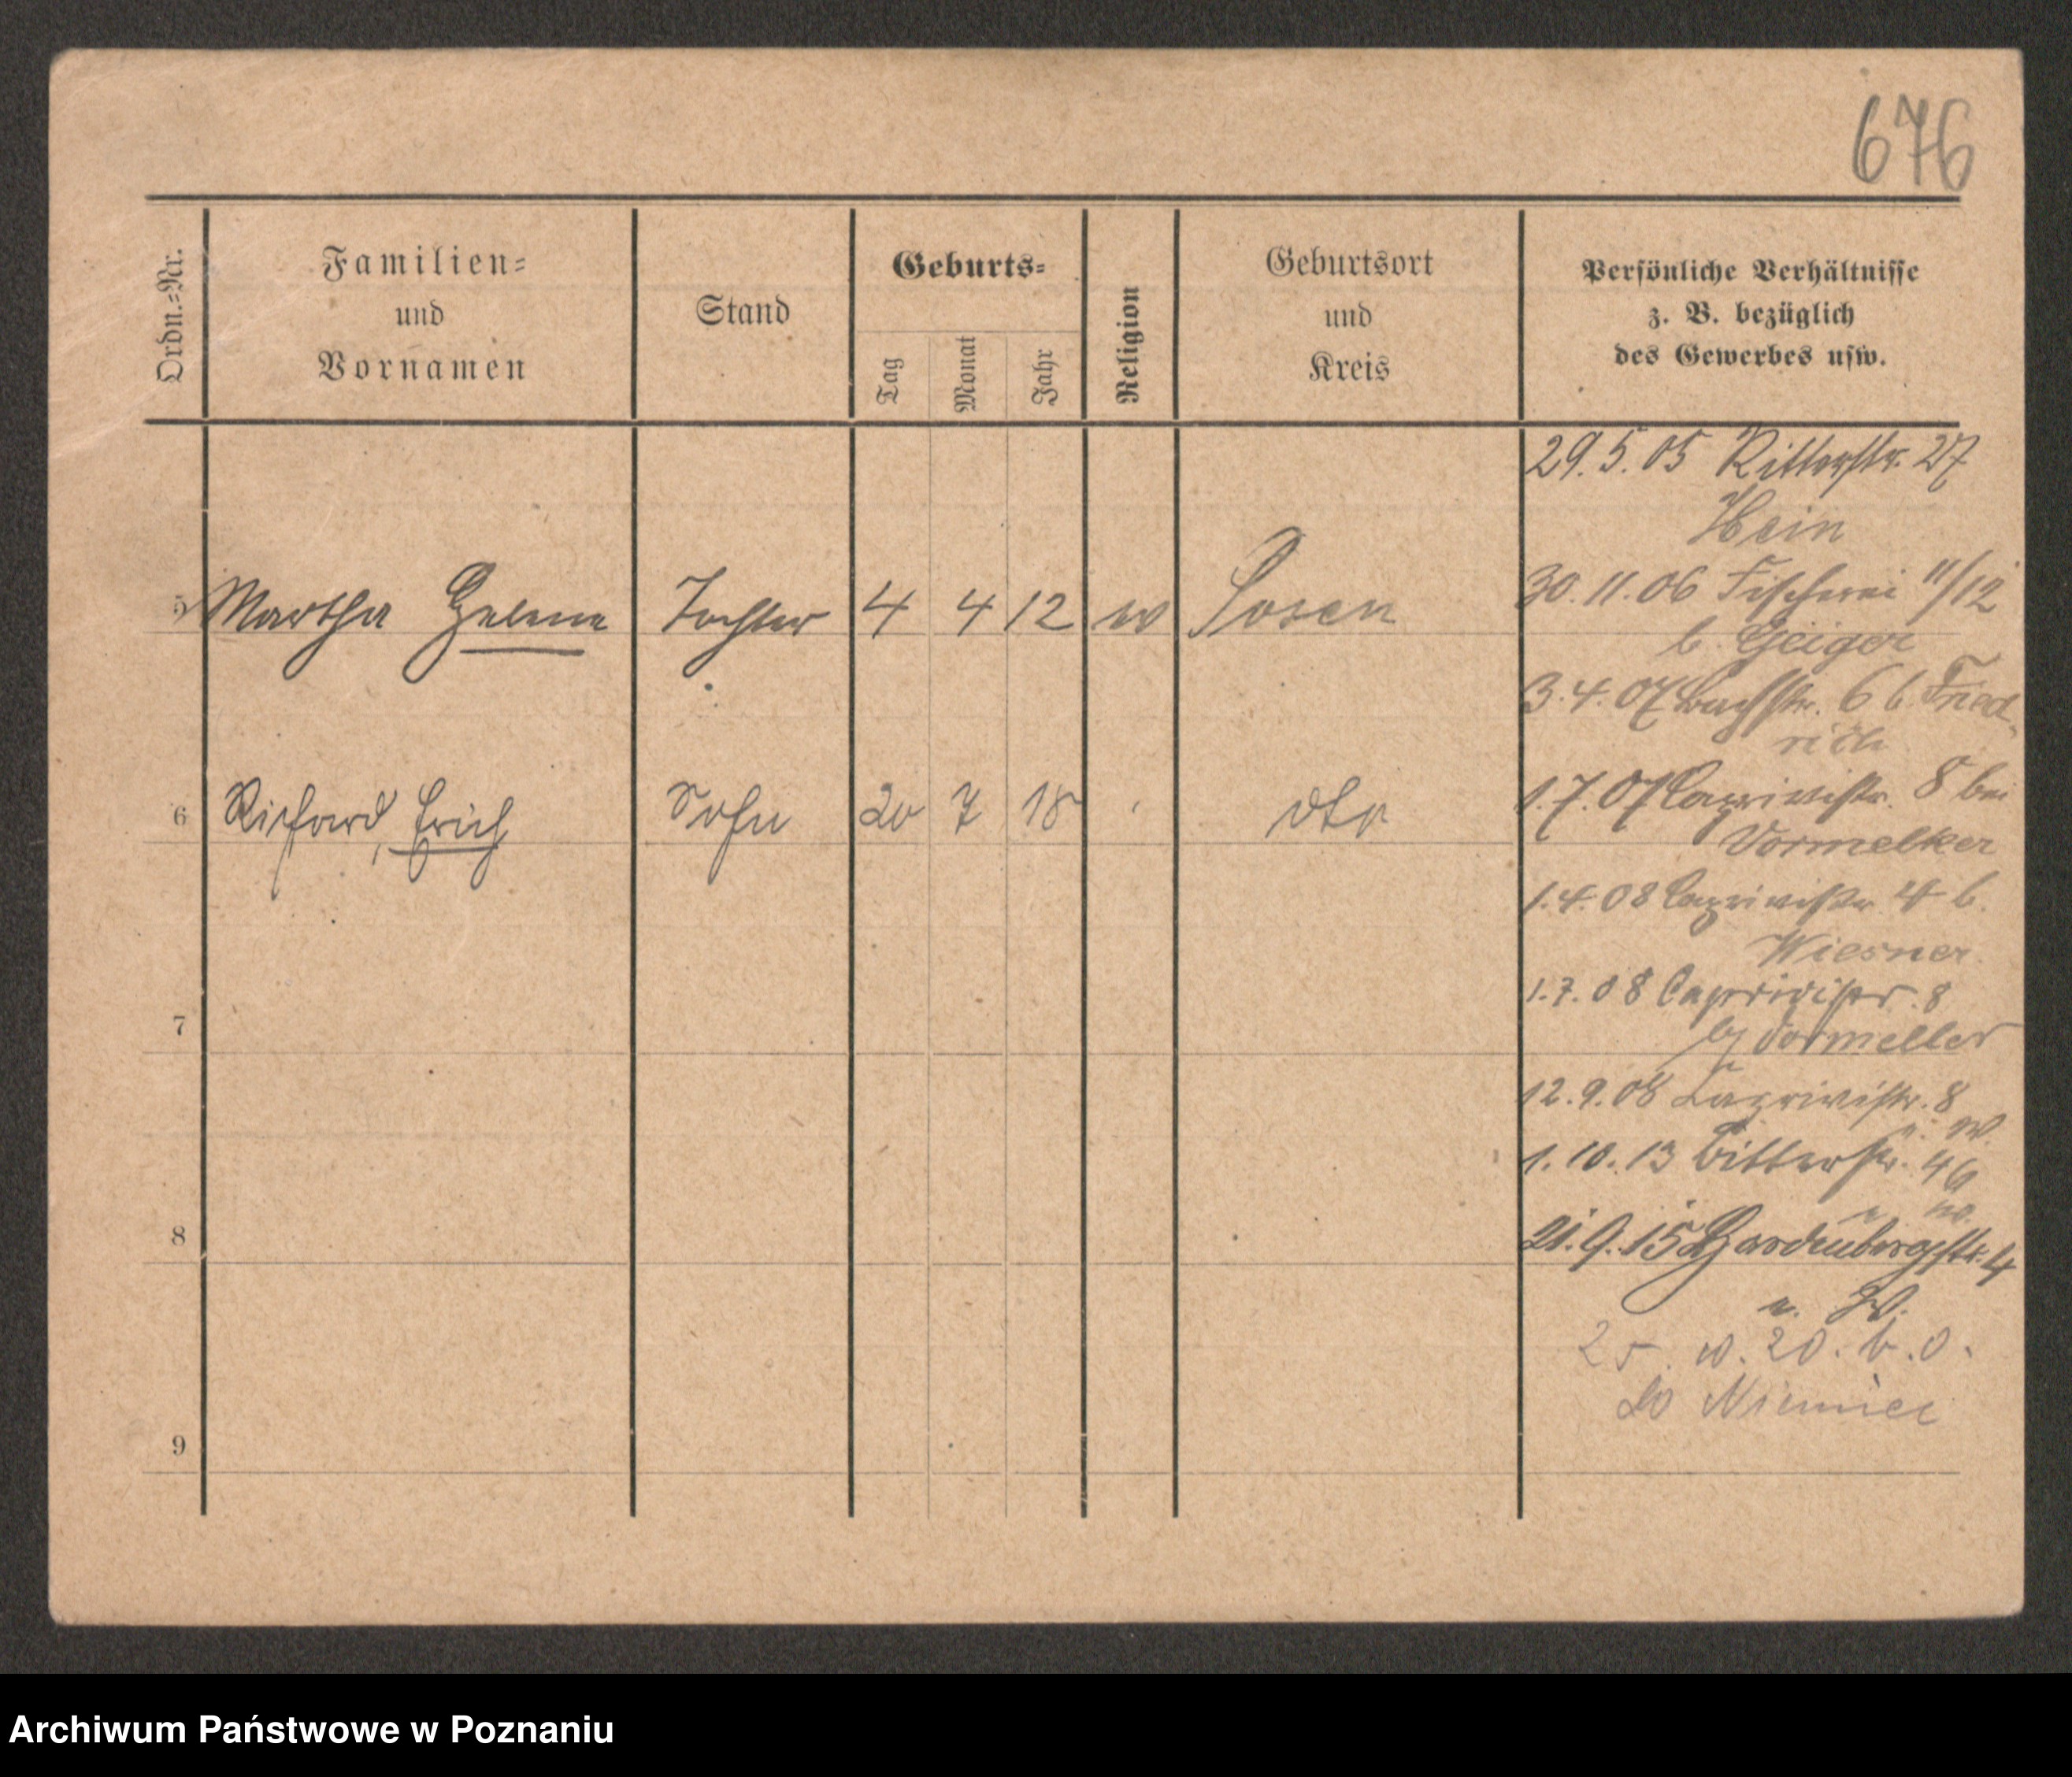 676
Ordn.-Nr.
Familien-
und
Vornamen
Stand
Geburts-
Tag
Monat
Jahr
Religion
Geburtsort
und
Kreis
Persönliche Verhältnisse
z. B. bezüglich
des Gewerbes usw.
29.5.05 Ritterstr. 27
Hein
5 Martha Helene Tochter 4 4 12 Posen
30.11.06 Fischerei 11/12
b. Geiger
3.4.07 Bachstr. 6 b. Fried
rich
6 Richard, Erich Sohn 20 7 18 dto
1.7.07 Caprivistr. 8 bei
Vormelker
1.4.08 Caprivistr. 4 b.
Wiesner
1.7.08 Caprivistr. 8
7
12.9.08 Caprivistr. 8
1.10.13 Bitterstr. 46
8
21.9.15 Hardenbergstr. 4
e. W.
20. b.
do Niemiec
9
Archiwum Państwowe w Poznaniu